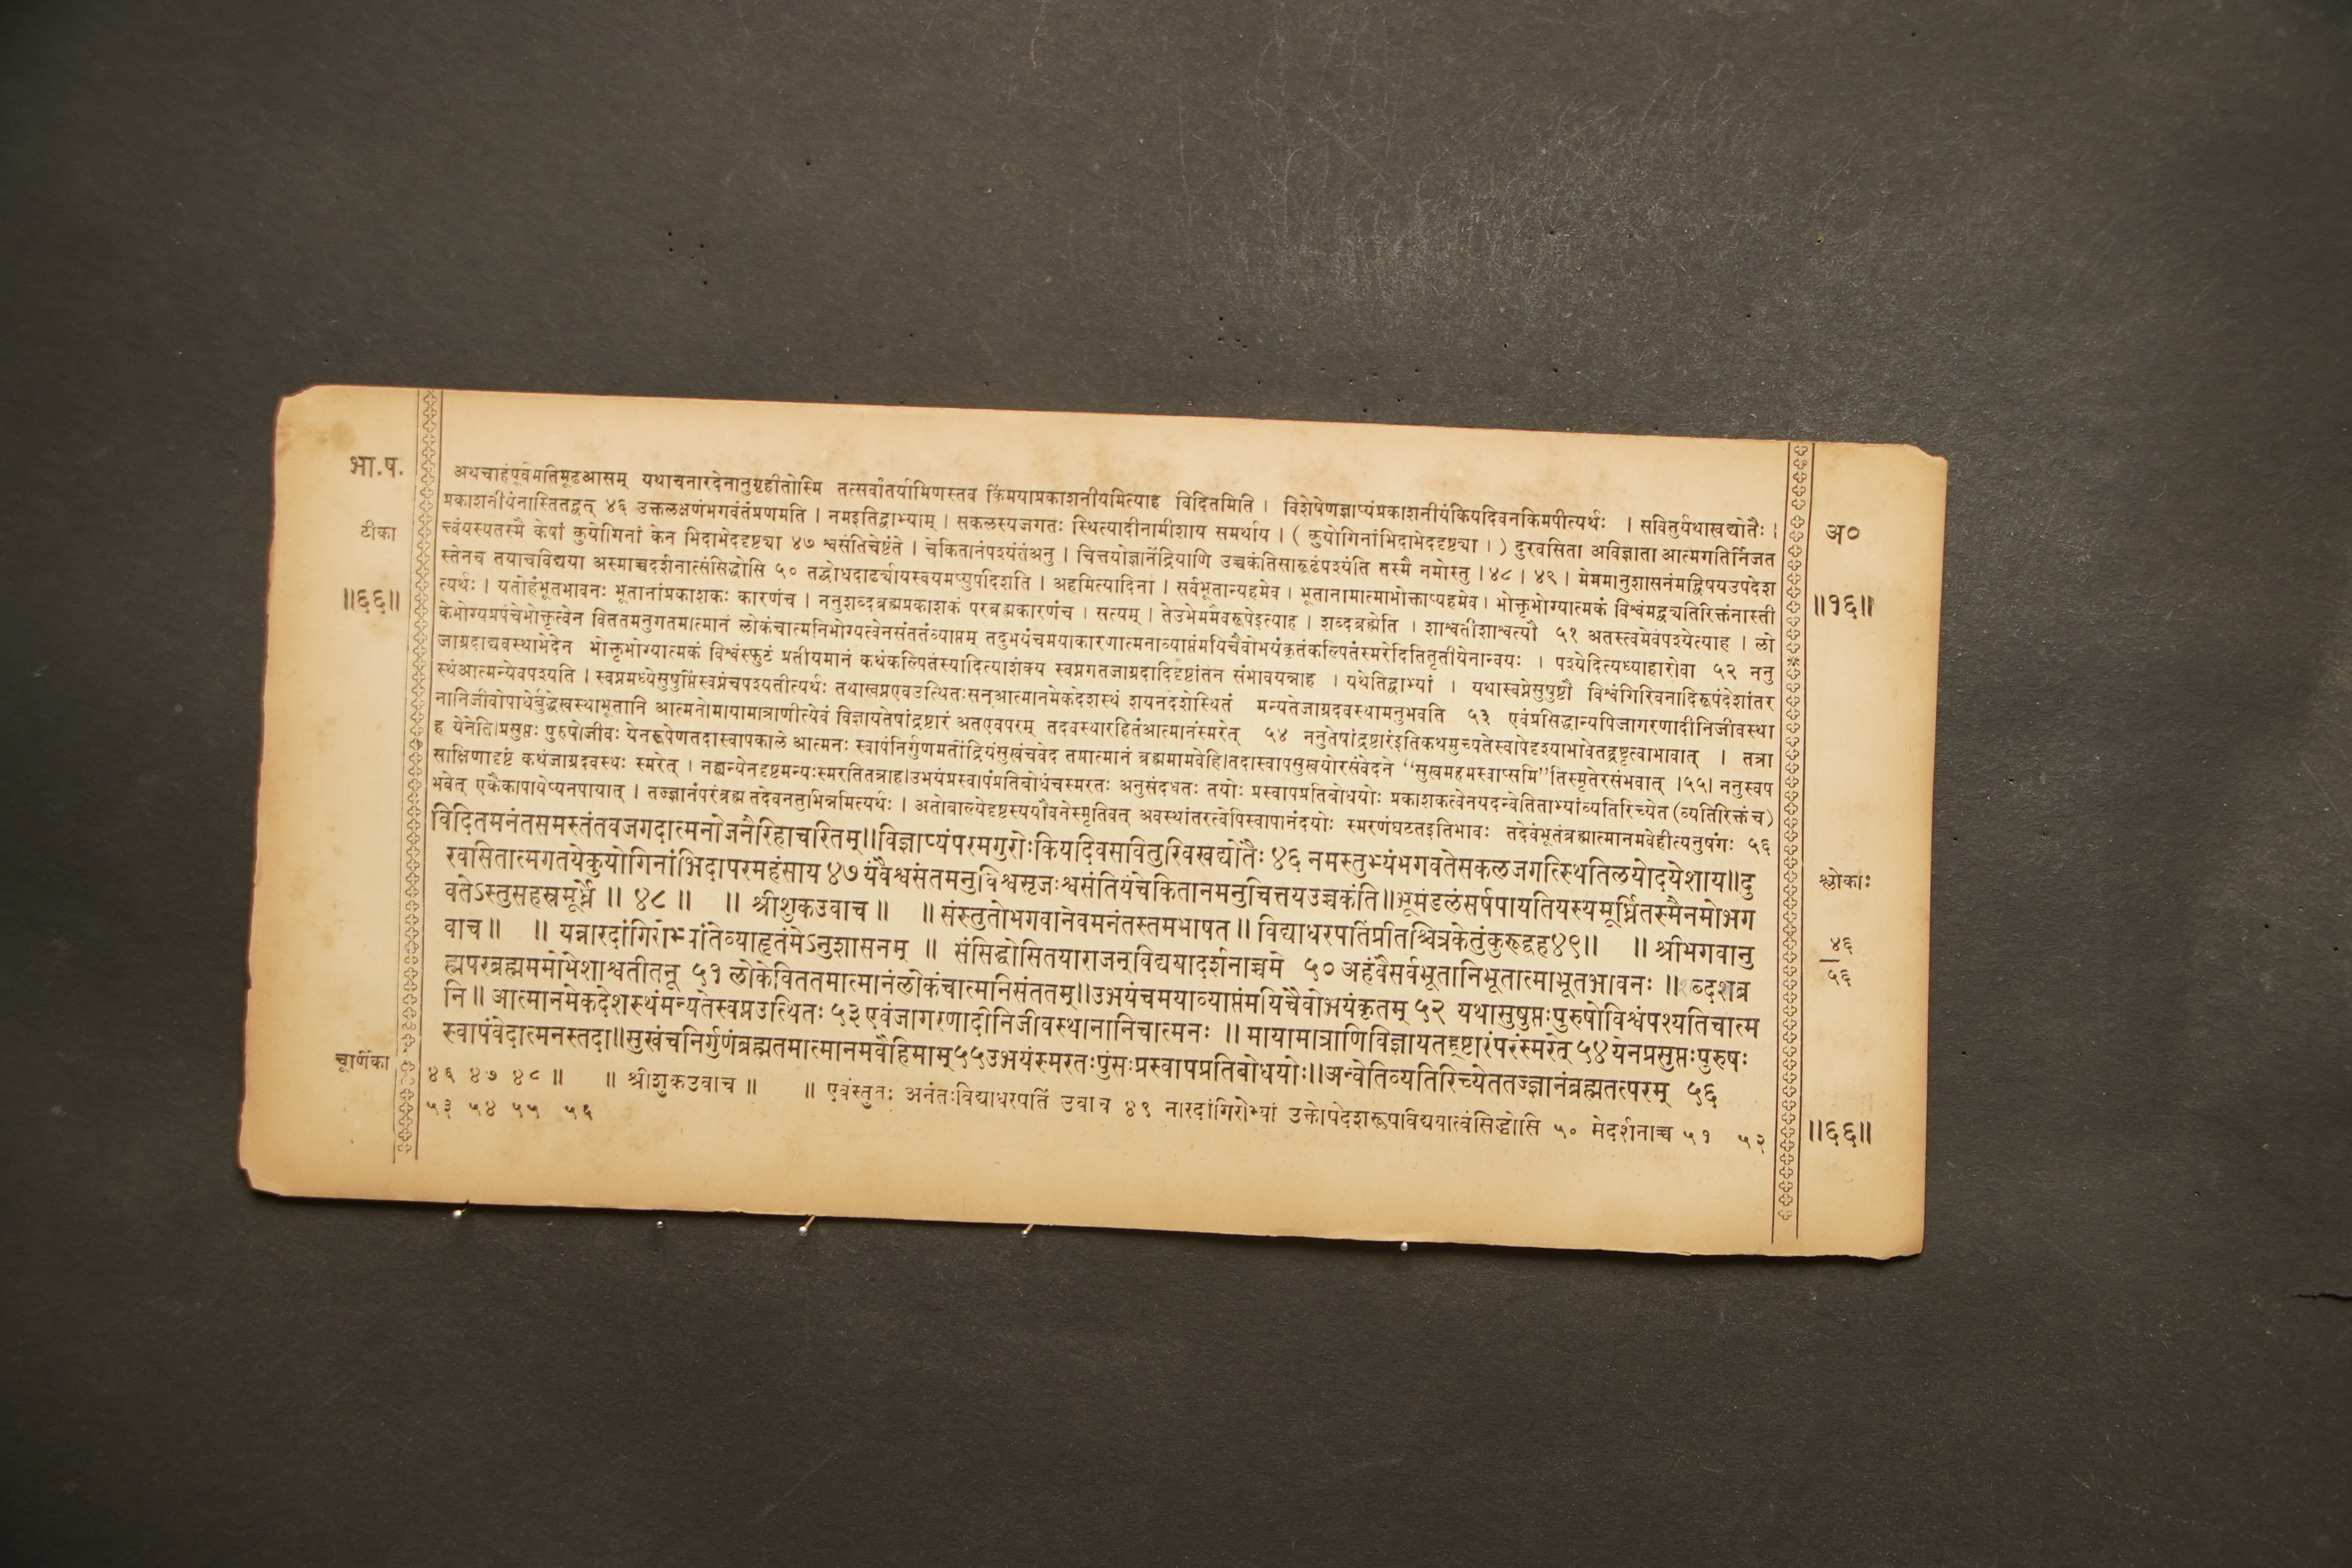 भा.ष.
टीका
॥६६॥
अथचाहंपूर्वमतिमूढआसम् यथाचनारदेनानुगृहीतोस्मि तत्सर्वांतर्यामिणस्तव किंमयाप्रकाशनीयमित्याह विदितमिति । विशेषेणज्ञाप्यंप्रकाशनीयंकियदिवनकिमपीत्यर्थः । सवितुर्यथाखद्योतैः ।
प्रकाशनीयंनास्तितद्वत् ४६ उक्तलक्षणंभगवंतंप्रणमति । नमइतिद्वाभ्याम् । सकलस्यजगतः स्थित्यादीनामीशाय समर्थाय । ( कुयोगिनांभिदाभेददृष्ट्या । ) दुरवसिता अविज्ञाता आत्मगतिर्निजत
त्त्वंयस्यतस्मै केषां कुयोगिनां केन भिदाभेददृष्ट्या ४७ श्वसंतिचेष्टंते । चेकितानंपश्यंतंअनु । चित्तयोज्ञानेंद्रियाणि उच्चकंतिसारूढंपश्यंति तस्मै नमोस्तु ।४८। ४९। मेममानुशासनंमद्विषयउपदेश
स्तेनच तयाचविद्यया अस्माच्चदर्शनात्संसिद्धोसि ५० तद्बोधदार्ढ्यायस्वयमप्युपदिशति । अहमित्यादिना । सर्वभूतान्यहमेव । भूतानामात्माभोक्ताप्यहमेव । भोक्तृभोग्यात्मकं विश्वंमद्व्यतिरिक्तंनास्ती
त्यर्थः । यतोहंभूतभावनः भूतानांप्रकाशकः कारणंच । ननुशब्दब्रह्मप्रकाशकं परब्रह्मकारणंच । सत्यम् । तेउभेममैवरूपेइत्याह । शब्दब्रह्मेति । शाश्वतीशाश्वत्यौ ५१ अतस्त्वमेवंपश्येत्याह । लो
केभोग्यप्रपंचेभोक्तृत्वेन विततमनुगतमात्मानं लोकंचात्मनिभोग्यत्वेनसंततंव्याप्तम् तदुभयंचमयाकारणात्मनाव्याप्तंमयिचैवोभयंकृतंकल्पितंस्मरेदितितृतीयेनान्वयः । पश्येदित्यध्याहारोवा ५२ ननु
जाग्रदाद्यवस्थाभेदेन भोक्तृभोग्यात्मकं विश्वंस्फुटं प्रतीयमानं कथंकल्पितंस्यादित्याशंक्य स्वप्नगतजाग्रदादिदृष्टांतेन संभावयन्नाह । यथेतिद्वाभ्यां । यथास्वप्नेसुषुप्तौ विश्वंगिरिवनादिरूपंदेशांतर
स्थंआत्मन्येवपश्यति । स्वप्नमध्येसुषुप्तिंस्वप्नंचपश्यतीत्यर्थः तथास्वप्नएवउत्थितःसन्आत्मानमेकदेशस्थं शयनदेशेस्थितं मन्यतेजाग्रदवस्थामनुभवति ५३ एवंप्रसिद्धान्यपिजागरणादीनिजीवस्था
नानिजीवोपाधेर्बुद्धेरवस्थाभूतानि आत्मनोमायामात्राणीत्येवं विज्ञायतेषांद्रष्टारं अतएवपरम् तदवस्थारहितंआत्मानंस्मरेत् ५४ ननुतेषांद्रष्टारंइतिकथमुच्यतेस्वापेदृश्याभावेतद्द्रष्टृत्वाभावात् । तत्रा
ह येनेति।प्रसुप्तः पुरुषोजीवः येनरूपेणतदास्वापकाले आत्मनः स्वापंनिर्गुणमतींद्रियंसुखंचवेद तमात्मानं ब्रह्ममामवेहि।तदास्वापसुखयोरसंवेदने “सुखमहमस्वाप्समि”तिस्मृतेरसंभवात् ।५५। ननुस्वप
साक्षिणादृष्टं कथंजाग्रदवस्थः स्मरेत् । नह्यन्येनदृष्टमन्यःस्मरतितत्राह।उभयंप्रस्वापंप्रतिबोधंचस्मरतः अनुसंदधतः तयोः प्रस्वापप्रतिबोधयोः प्रकाशकत्वेनयदन्वेतिताभ्यांव्यतिरिच्येत (व्यतिरिक्तंच)
भवेत् एकैकापायेप्यनपायात् । तज्ज्ञानंपरंब्रह्म तदेवनतुभिन्नमित्यर्थः । अतोबाल्येदृष्टस्ययौवनेस्मृतिवत् अवस्थांतरत्वेपिस्वापानंदयोः स्मरणंघटतइतिभावः तदेवंभूतंब्रह्मात्मानमवेहीत्यनुषंगः ५६
विदितमनंतसमस्तंतवजगदात्मनोजनैरिहाचरितम्॥विज्ञाप्यंपरमगुरोःकियदिवसवितुरिवखद्योतैः ४६ नमस्तुभ्यंभगवतेसकलजगत्स्थितिलयोदयेशाय॥दु
रवसितात्मगतयेकुयोगिनांभिदापरमहंसाय ४७ यंवैश्वसंतमनुविश्वसृजःश्वसंतियंचेकितानमनुचित्तयउच्चकंति॥भूमंडलंसर्षपायतियस्यमूर्ध्नितस्मैनमोभग
वतेऽस्तुसहस्रमूर्ध्ने ॥ ४८ ॥ ॥ श्रीशुकउवाच ॥ ॥ संस्तुतोभगवानेवमनंतस्तमभाषत ॥ विद्याधरपतिंप्रीतश्चित्रकेतुंकुरूद्वह४९॥ ॥ श्रीभगवानु
वाच ॥ ॥ यन्नारदांगिरोभ्यांतेव्याहृतंमेऽनुशासनम् ॥ संसिद्धोसितयाराजन्विद्ययादर्शनाच्चमे ५० अहंवैसर्वभूतानिभूतात्माभूतभावनः ॥ ब्दशब्र
ह्मपरंब्रह्ममोभेशाश्वतीतनू ५१ लोकेविततमात्मानंलोकंचात्मनिसंततम्॥उभयंचमयाव्याप्तंमयिचैवोभयंकृतम् ५२ यथासुषुप्तःपुरुषोविश्वंपश्यतिचात्म
नि ॥ आत्मानमेकदेशस्थंमन्यतेस्वप्नउत्थितः ५३ एवंजागरणादीनिजीवस्थानानिचात्मनः ॥ मायामात्राणिविज्ञायतद्द्रष्टारंपरंस्मरेत् ५४ येनप्रसुप्तःपुरुषः
स्वापंवेदात्मनस्तदा॥सुखंचनिर्गुणंब्रह्मतमात्मानमवेहिमाम्५५उभयंस्मरतःपुंसःप्रस्वापप्रतिबोधयोः॥अन्वेतिव्यतिरिच्येततज्ज्ञानंब्रह्मतत्परम् ५६
चूर्णिका
४६ ४७ ४८ ॥ ॥ श्रीशुकउवाच ॥ ॥ एवंस्तुतः अनंतःविद्याधरपतिं उवाच ४९ नारदांगिरोभ्यां उक्तोपदेशरूपाविद्ययात्वंसिद्धोसि ५० मेदर्शनाच्च ५१ ५२
५३ ५४ ५५ ५६
अ०
॥१६॥
श्लोकाः
४६
५६
॥६६॥